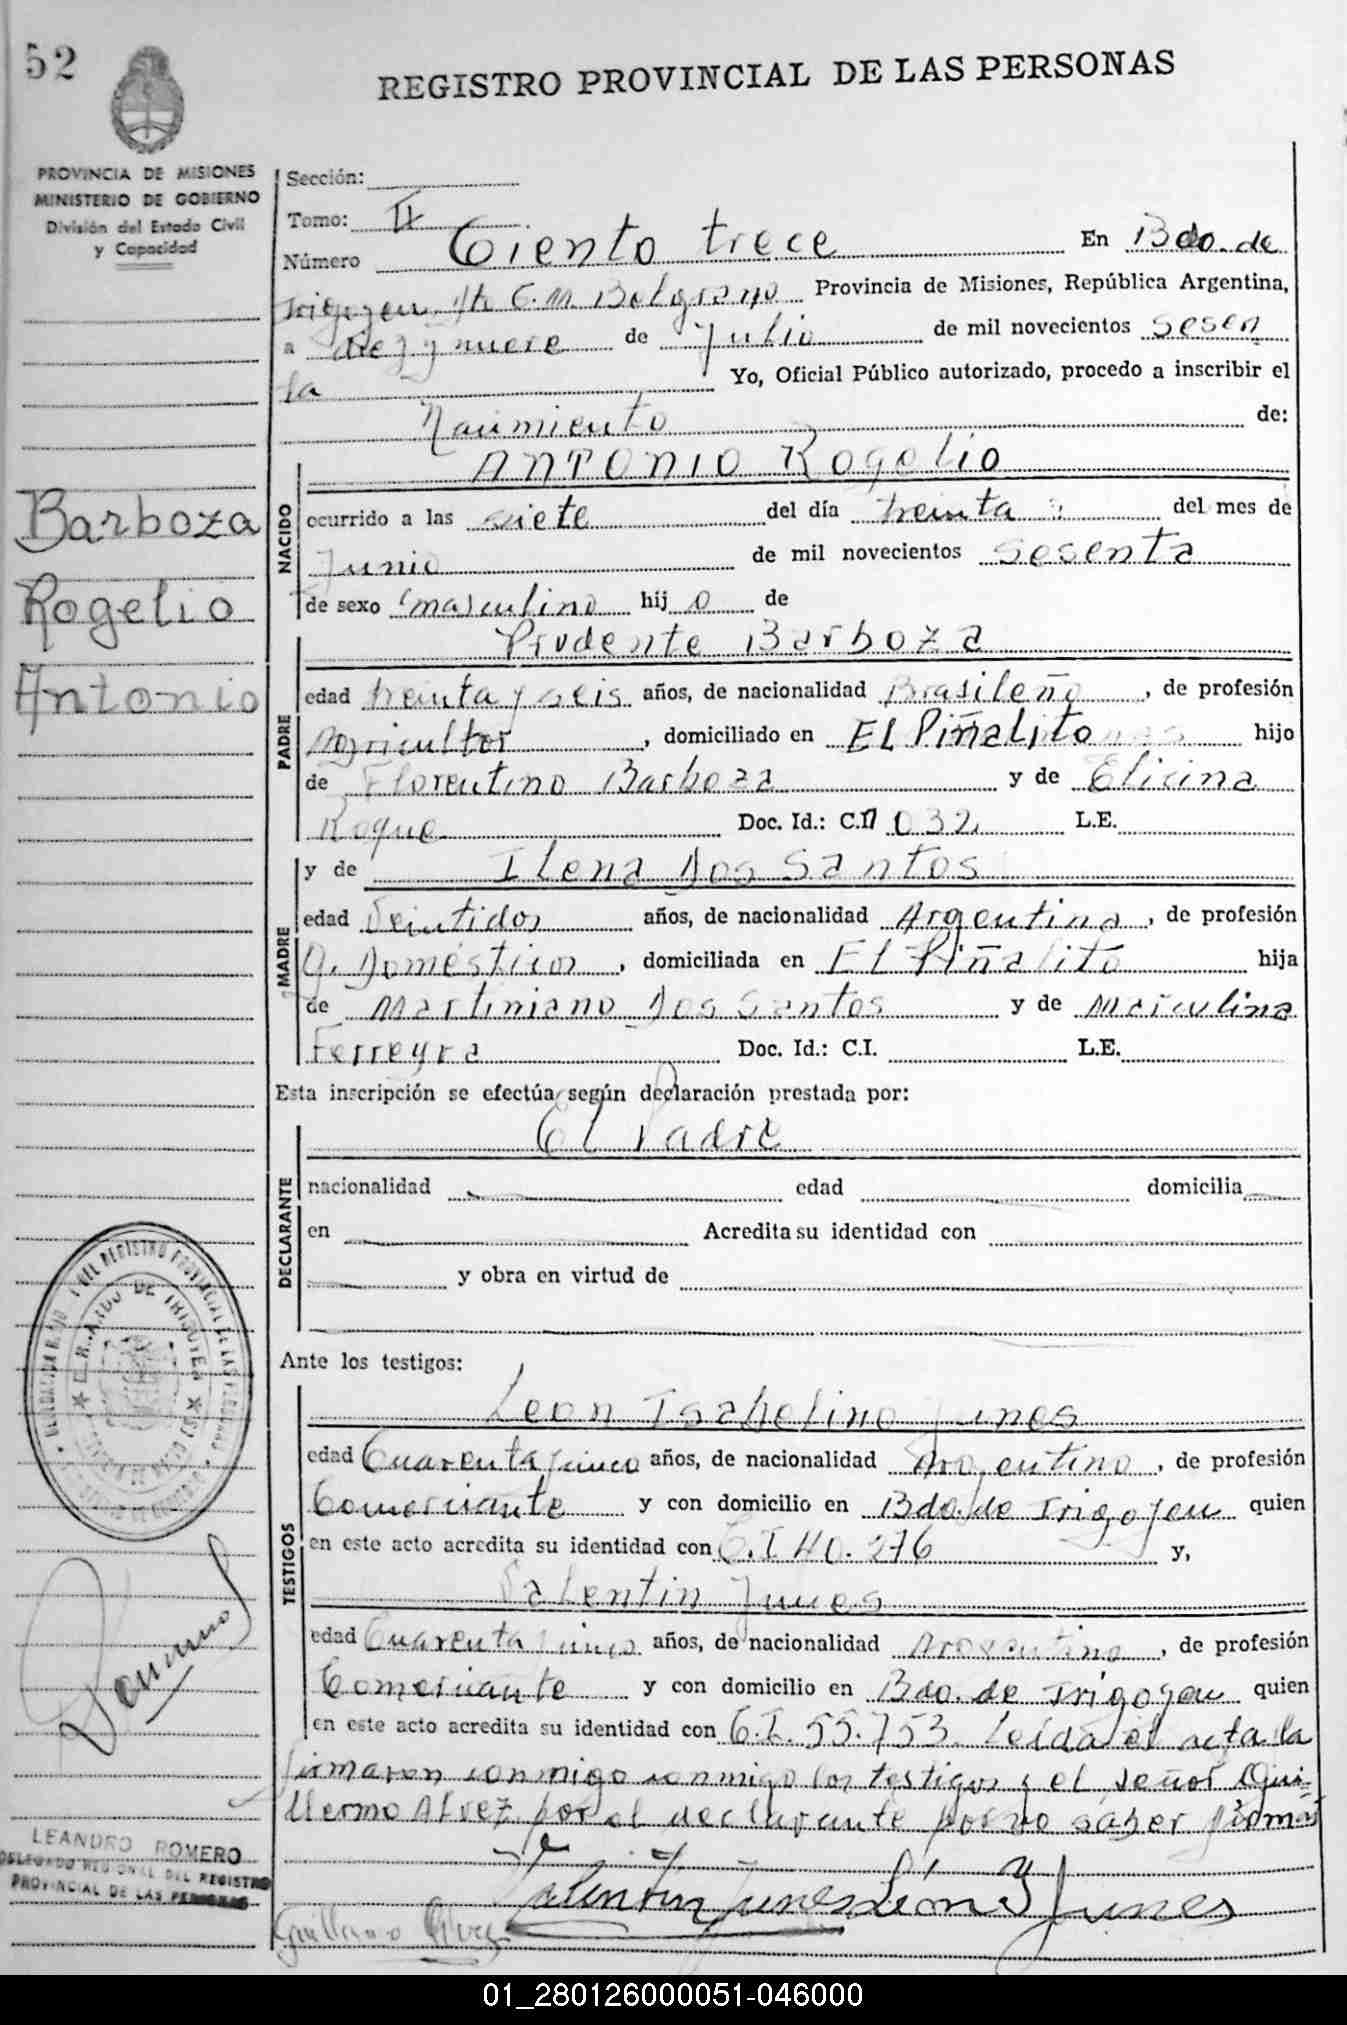 52
REGISTRO PROVINCIAL DE LAS PERSONAS
PROVINCIA DE MISIONES
MINISTERIO DE GOBIERNO
División del Estado Civil
y Capacidad
Sección:
Tomo: II
Número Ciento trece En Bdo. de
Irigoyen Dto G. M. Belgrano Provincia de Misiones, República Argentina,
a diez y nueve de Julio de mil novecientos sesen
ta Yo, Oficial Público autorizado, procedo a inscribir el
Nacimiento de:
ANTONIO Rogelio
Barboza
Rogelio
Antonio
NACIDO
ocurrido a las siete del día treinta del mes de
Junio de mil novecientos sesenta
de sexo masculino hij o de
Prudente Barboza
PADRE
edad treinta y seis años, de nacionalidad Brasileño, de profesión
Agricultor, domiciliado en El Piñalito hijo
de Florentino Barboza y de Elicina
Roque Doc. Id.: C. 032 L.E.
MADRE
y de Ilena Dos Santos
edad Veintidos años, de nacionalidad Argentina, de profesión
Q. Domésticos, domiciliada en El Piñalito hija
de Martiniano Dos Santos y de Masculina
Ferreyra Doc. Id.: C.I. L.E.
Esta inscripción se efectúa según declaración prestada por:
El Padre
DECLARANTE
nacionalidad edad domicilia
en Acredita su identidad con
y obra en virtud de
Ante los testigos:
TESTIGOS
Leon Isabelino Junes
edad Cuarenta y cinco años, de nacionalidad Argentino, de profesión
Comerciante y con domicilio en Bdo. de Irigoyen quien
en este acto acredita su identidad con C.I 40.276 y,
Valentin Junes
edad Cuarenta y cinco años, de nacionalidad Argentino, de profesión
Comerciante y con domicilio en Bdo. de Irigoyen quien
en este acto acredita su identidad con C.I. 55.753 Leída el acta la
firmaron conmigo conmigo los testigos y el señor Gui-
llermo Alvez por el declarante por no saber firmar
Valentin Junes Leon Y Junes
Guillermo Alvez
LEANDRO ROMERO
DELEGADO REGIONAL DEL REGISTRO
PROVINCIAL DE LAS PERSONAS
01_280126000051-046000